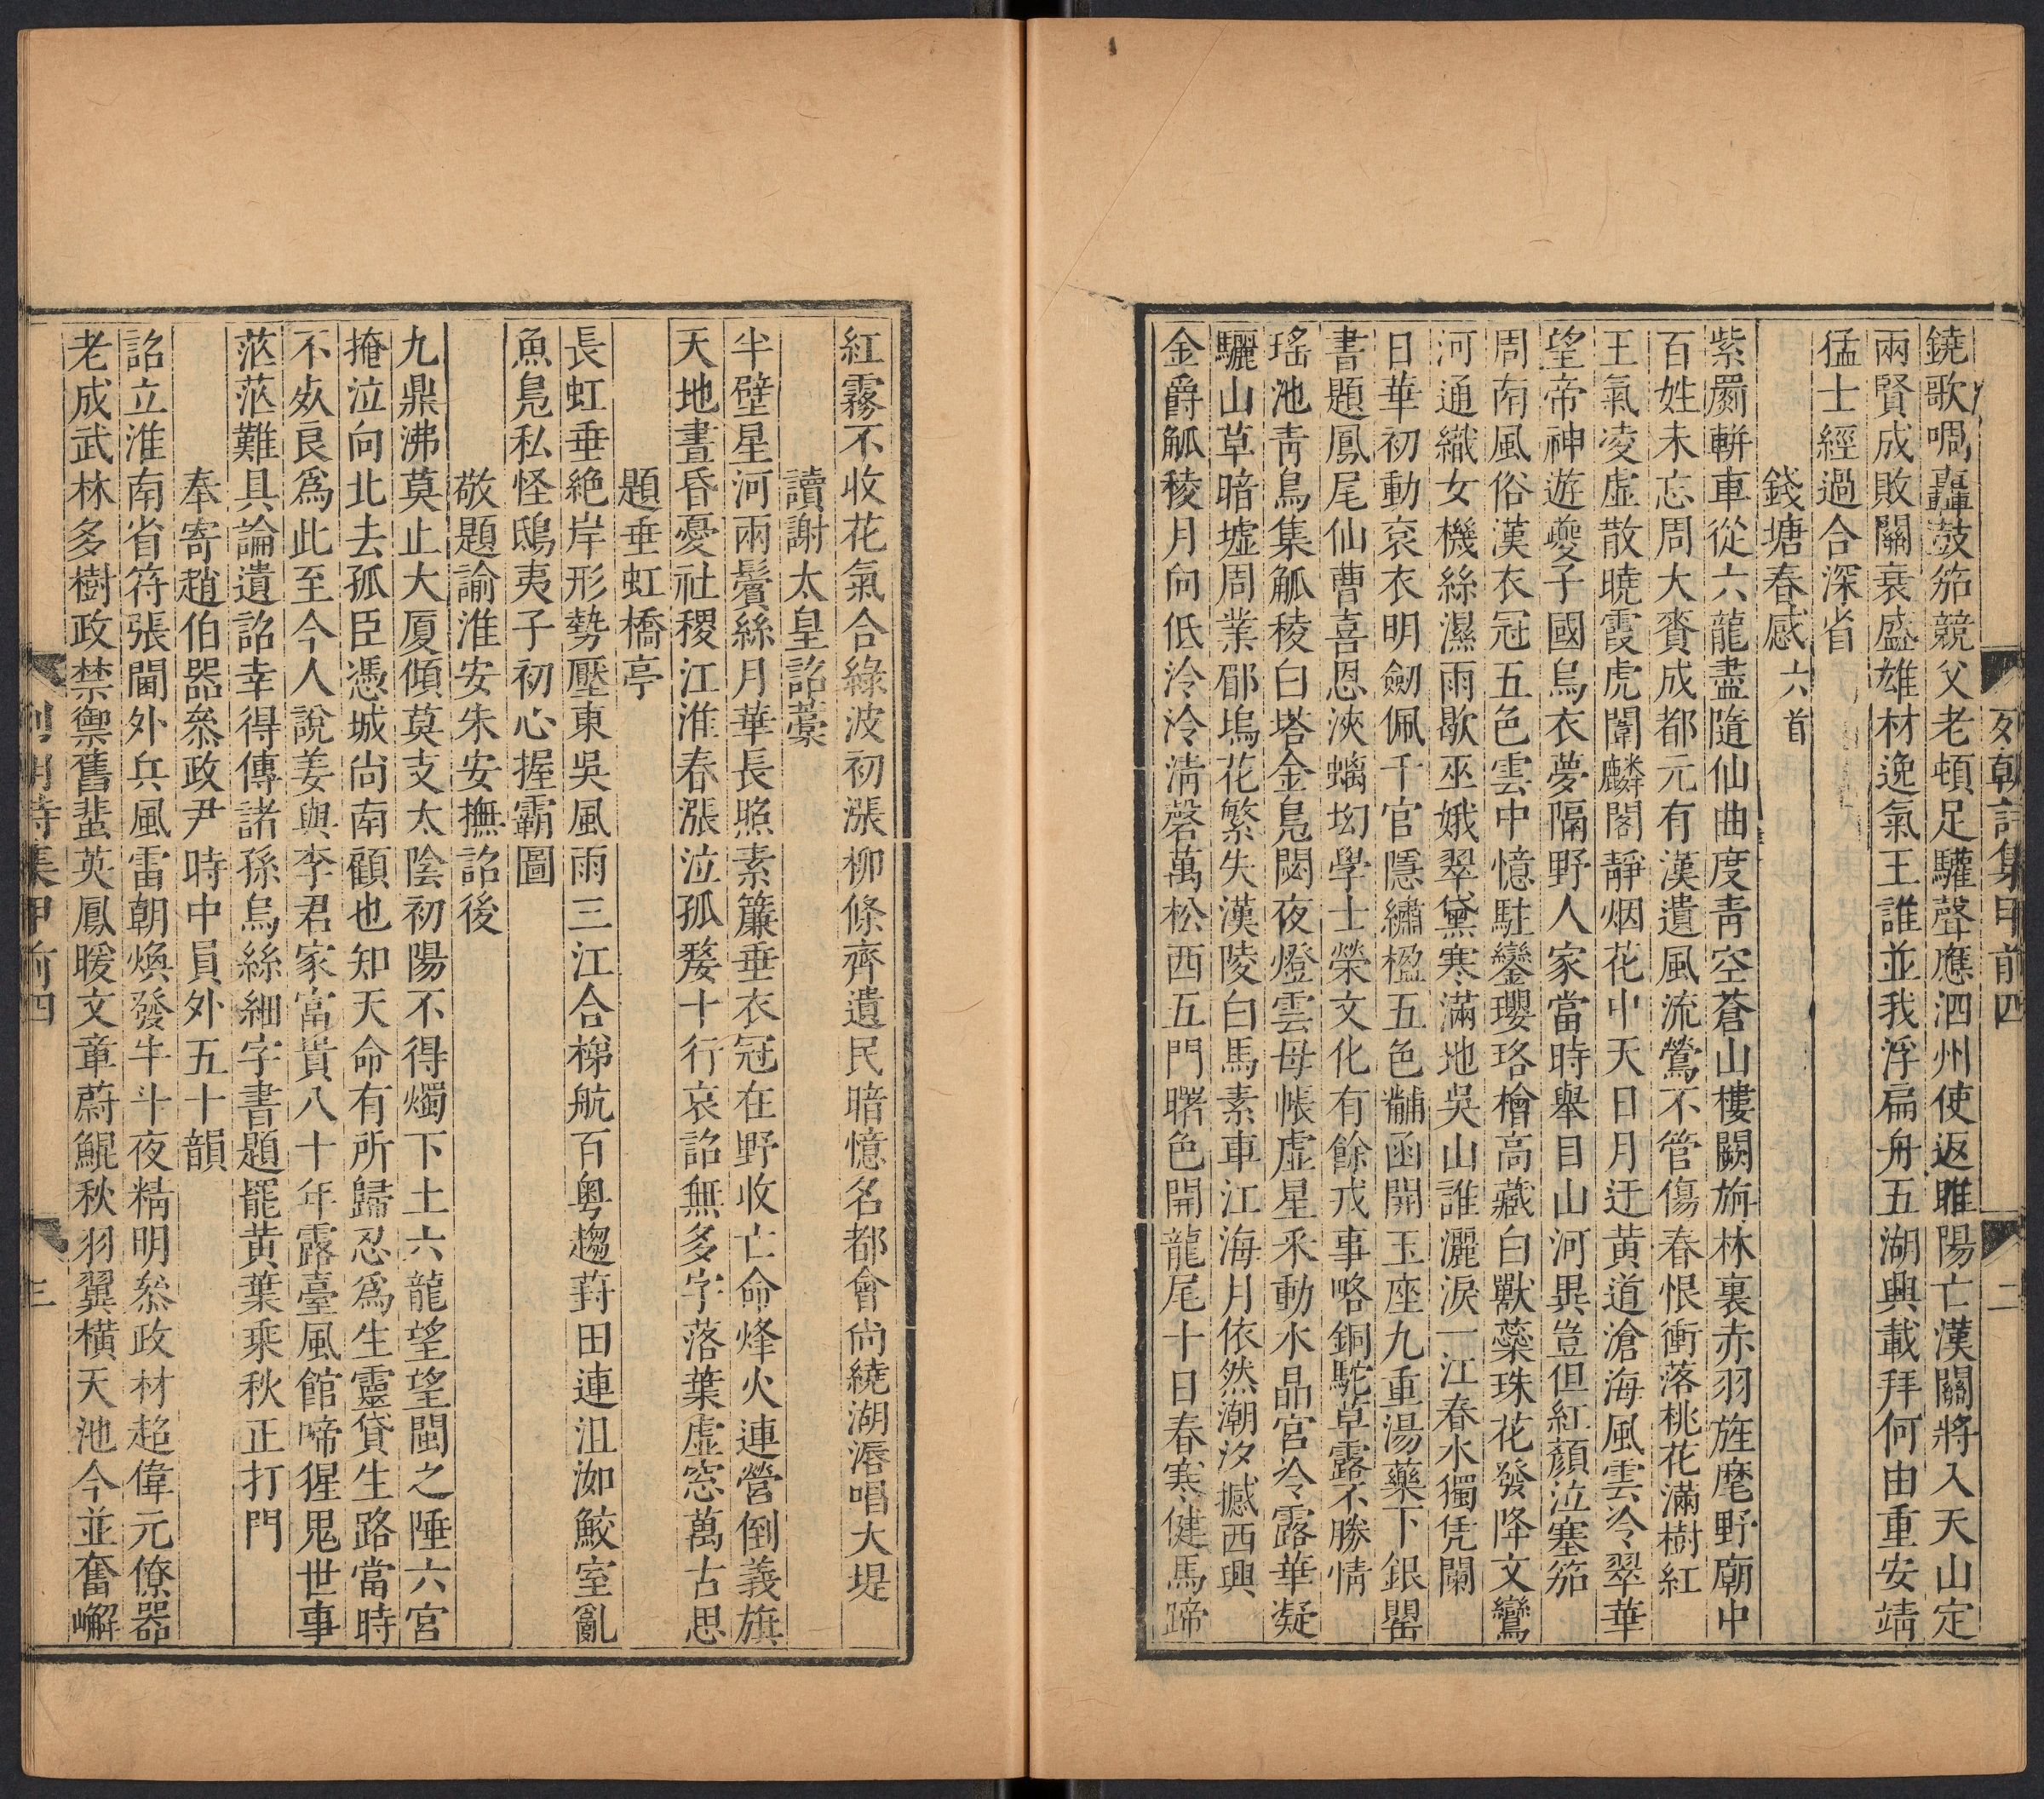 列朝詩集甲前四
二
鐃歌啁轟鼓笳競父老頓足驩聲應泗州使返睢陽亡漢關將入天山定
兩賢成敗關衰盛雄材逸氣王誰並我浮扁舟五湖興載拜何由重安靖
猛士經過合深省
錢塘春感六首
紫罽軿車從六龍盡隨仙曲度青空蒼山樓闕旃林裏赤羽旌麾野廟中
百姓未忘周大賚成都元有漢遺風流鶯不管傷春恨衝落桃花滿樹紅
王氣凌虛散曉霞虎闈麟閣靜烟花中天日月迂黃道滄海風雲冷翠華
望帝神遊夔子國烏衣夢隔野人家當時舉目山河異豈但紅顏泣塞笳
周南風俗漢衣冠五色雲中憶駐鑾瓔珞檜高藏白獸蘂珠花發降文鸞
河通織女機絲濕雨歇巫娥翠黛寒滿地吳山誰灑淚一江春水獨凭闌
日華初動袞衣明劒佩千官隱繡楹五色黼函開玉座九重湯藥下銀罌
書題鳳尾仙曹喜恩浹螭坳學士榮文化有餘戎事略銅駝草露不勝情
瑤池靑鳥集觚稜白塔金鳧閟夜燈雲母帳虛星釆動水晶宮冷露華凝
驪山草暗墟周業郿塢花繁失漢陵白馬素車江海月依然潮汐撼西興
金爵觚稜月向低泠泠清磬萬松西五門曙色開龍尾十日春寒健馬蹄
紅霧不收花氣合綠波初漲柳條齊遺民暗憶名都會尙繞湖漘唱大堤
讀謝太皇詔藁
半壁星河兩鬢絲月華長照素簾垂衣冠在野收亡命烽火連營倒義旗
天地晝昏憂社稷江淮春漲泣孤嫠十行哀詔無多字落葉虛窓萬古思
題垂虹橋亭
長虹垂絶岸形勢壓東吳風雨三江合梯航百粤趨葑田連沮洳鮫室亂
魚鳧私怪鴟夷子初心握霸圖
敬題諭淮安朱安撫詔後
九鼎沸莫止大厦傾莫支太陰初陽不得燭下土六龍望望閩之陲六宮
掩泣向北去孤臣憑城尙南顧也知天命有所歸忍爲生靈貸生路當時
不㚻良爲此至今人說姜與李君家富貴八十年露臺風館啼猩鬼世事
茫茫難具論遺詔幸得傳諸孫烏絲細字書題罷黃葉乘秋正打門
奉寄趙伯器叅政尹時中員外五十韻
詔立淮南省符張閫外兵風雷朝煥發牛斗夜精明叅政材超偉元僚器
老成武林多樹政禁禦舊蜚英鳳暖文章蔚鯤秋羽翼橫天池今並奮嶰
列朝詩集甲前四
三